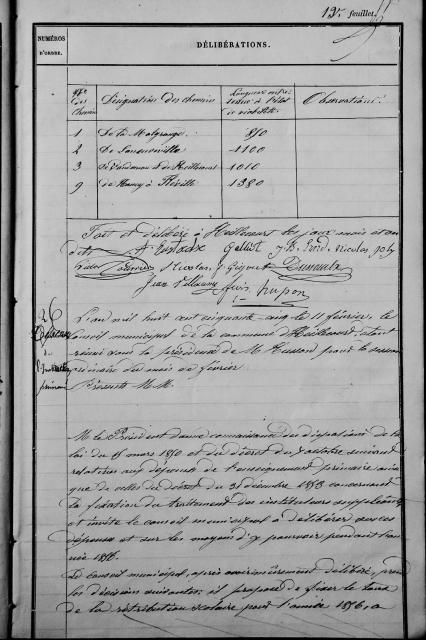 13e. feuillet.
NUMÉROS D'ORDRE.
DÉLIBÉRATIONS.
Nos des chemins
Désignation des chemins
Longueur entretenue à l'état de viabilité
Observations.
1 De la Malgrange 850
2 De Janneville 1100
3 1010
9 De Nancy à Fléville 1380
Fait et délibéré à Heillecourt les jour, mois et an
dits
Gallet Nicolas
Nicolas
26
Dépenses
de
l'Instruction
primaire
L'an mil huit cent cinquante cinq le 11 février, le
Conseil municipal de la commune d'Heillecourt, étant
réuni sous la présidence de M. Husson pour la session
ordinaire du mois de février
Présents M.M.
M. le Président donne connaissance des dispositions de la
loi du 15 mars 1850 et du décret du 7 octobre suivant
relatives aux dépenses de l'enseignement primaire ainsi
que de celles du décret du 31 décembre 1853 concernant
la fixation du traitement des instituteurs suppléants
et invite le conseil municipal à délibérer sur ces
dépenses et sur les moyens d'y pourvoir pendant l'an
née 1856.
Le Conseil municipal, après avoir mûrement délibéré, prend
les décisions suivantes: il propose de fixer le taux
de la rétribution scolaire pour l'année 1856, a